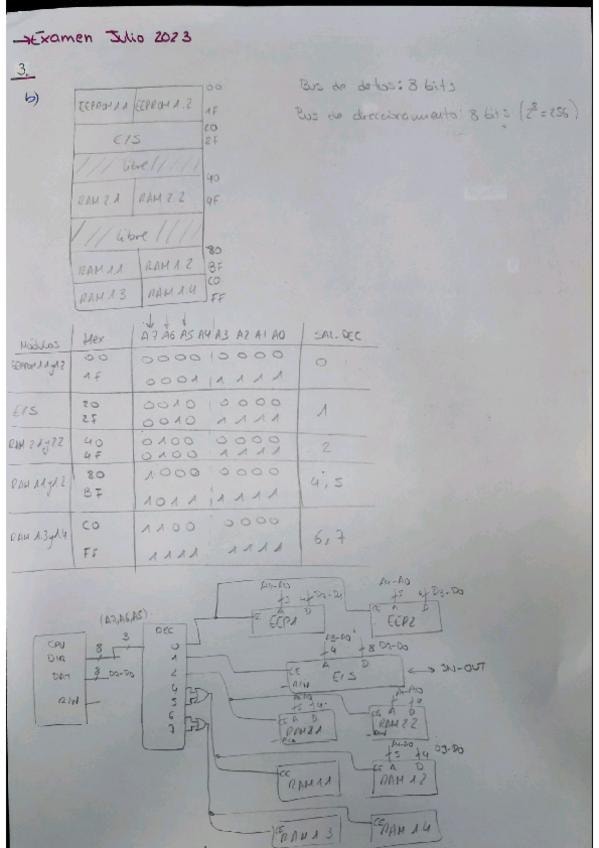 →Examen Julio 2023
3.
b)
Bus de datos: 8 bits
Bus de direccionamiento: 8 bits (2^8=256)
EEPROM 1.1 EEPROM 1.2 00
1F
E/S 20
2F
/// Libre ////
40
RAM 2.1 RAM 2.2
4F
/// Libre ////
80
RAM 1.1 RAM 1.2 BF
RAM 1.3 RAM 1.4 C0
FF
Módulos Hex A7 A6 A5 A4 A3 A2 A1 A0 SAL. DEC
EEPROM 1.1 y 1.2 00 0000 0000 0
1F 0001 1111
E/S 20 0010 0000 1
2F 0010 1111
RAM 2.1 y 2.2 40 0100 0000 2
4F 0100 1111
RAM 1.1 y 1.2 80 1000 0000 4, 5
BF 1011 1111
RAM 1.3 y 1.4 C0 1100 0000 6, 7
FF 1111 1111
(A7,A6,A5)
CPU
DIR 8 3
DAT 8 D7-D0
R/W
DEC
0
1
2
4
5
6
7
A4-A0 5 4
CE A D
EEP1
A4-A0 5 4 D3-D0
CE A D
EEP2
A3-A0 4 8 D7-D0
CE A D
R/W E/S ↔ IN-OUT
CE A D
RAM 2.1
CE A D
RAM 2.2
CE RAM 1.1
A4-A0 5 4 D3-D0
CE A D
RAM 1.2
CE RAM 1.3
CE RAM 1.4